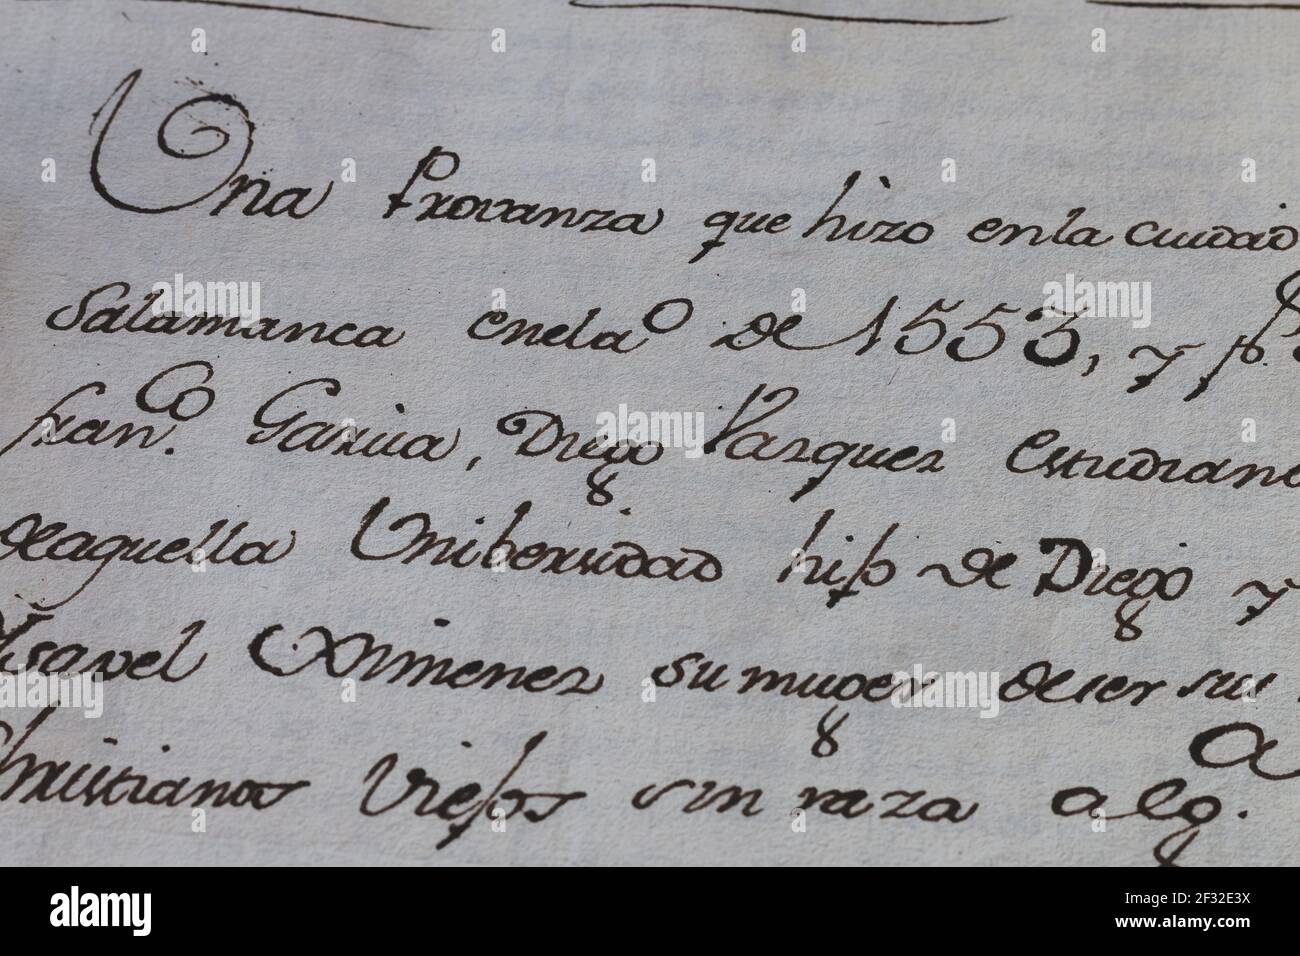 Una Provanza que hizo en la ciudad
Salamanca enel a.º de 1553, y p.
fran.co Garcia, Diego Vazquez estudian
deaquella Unibersidad hijo de Diego y
Ysavel Ximenez su muger de ser su
Christianos Viejos sin raza alg.a
alamy
Image ID: 2F32E3X
www.alamy.com